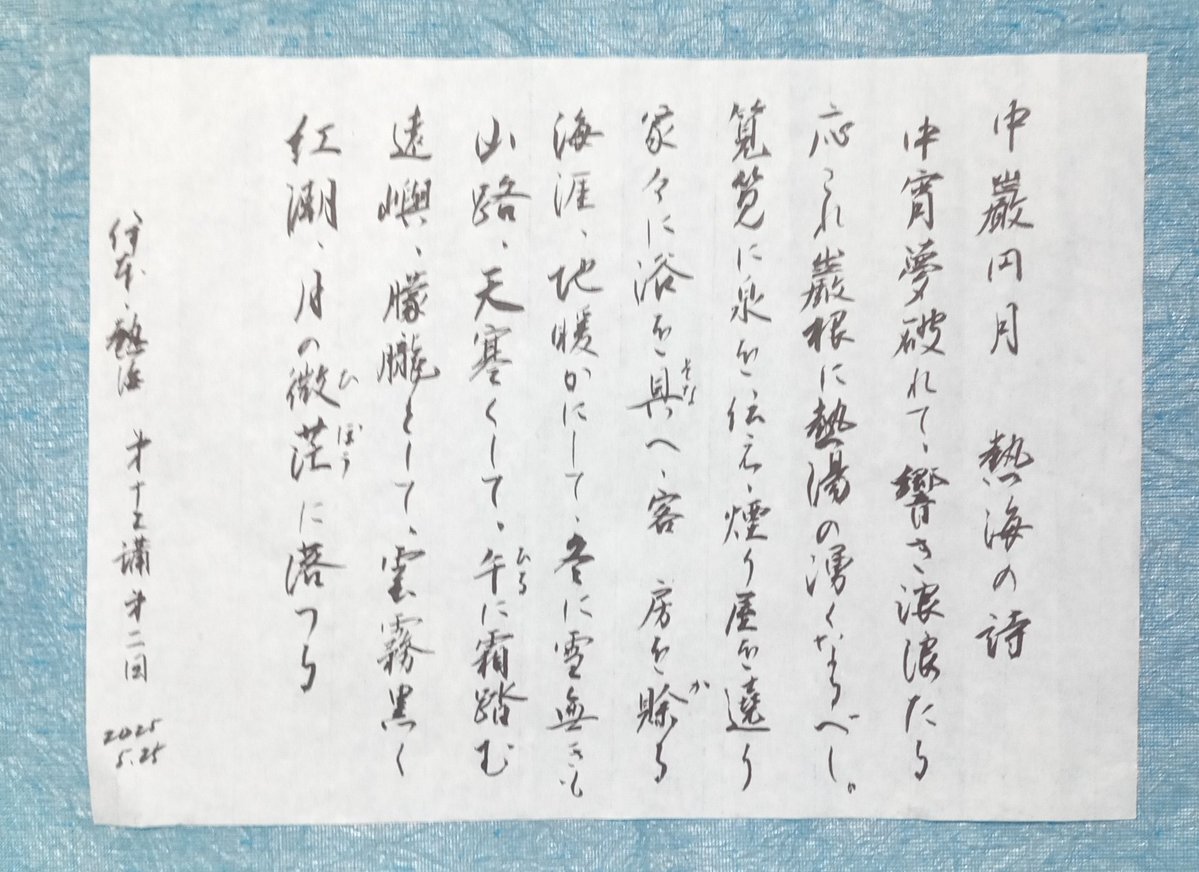 中巌円月　熱海の詩
中宵夢破れて、響き浪浪たる
応これ巌根に熱湯の湧くなるべし。
筧筧に泉を伝え、煙り屋を遶り
家々に浴を具へ、客　房を賒る
そな
か
海涯、地暖かにして、冬に雪無きも
山路、天寒くして、午に霜踏む
ひる
遠嶼、朦朧として、雲霧黒く
紅潮、月の微茫に落つる
ひ　ぼう
熱海　第十五講　第二回
2025
5.25